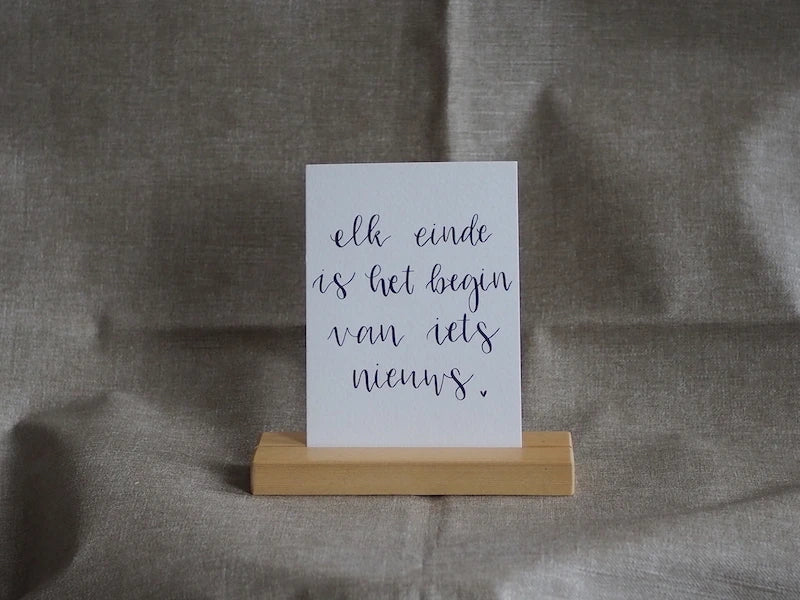 elk einde
is het begin
van iets
nieuws.